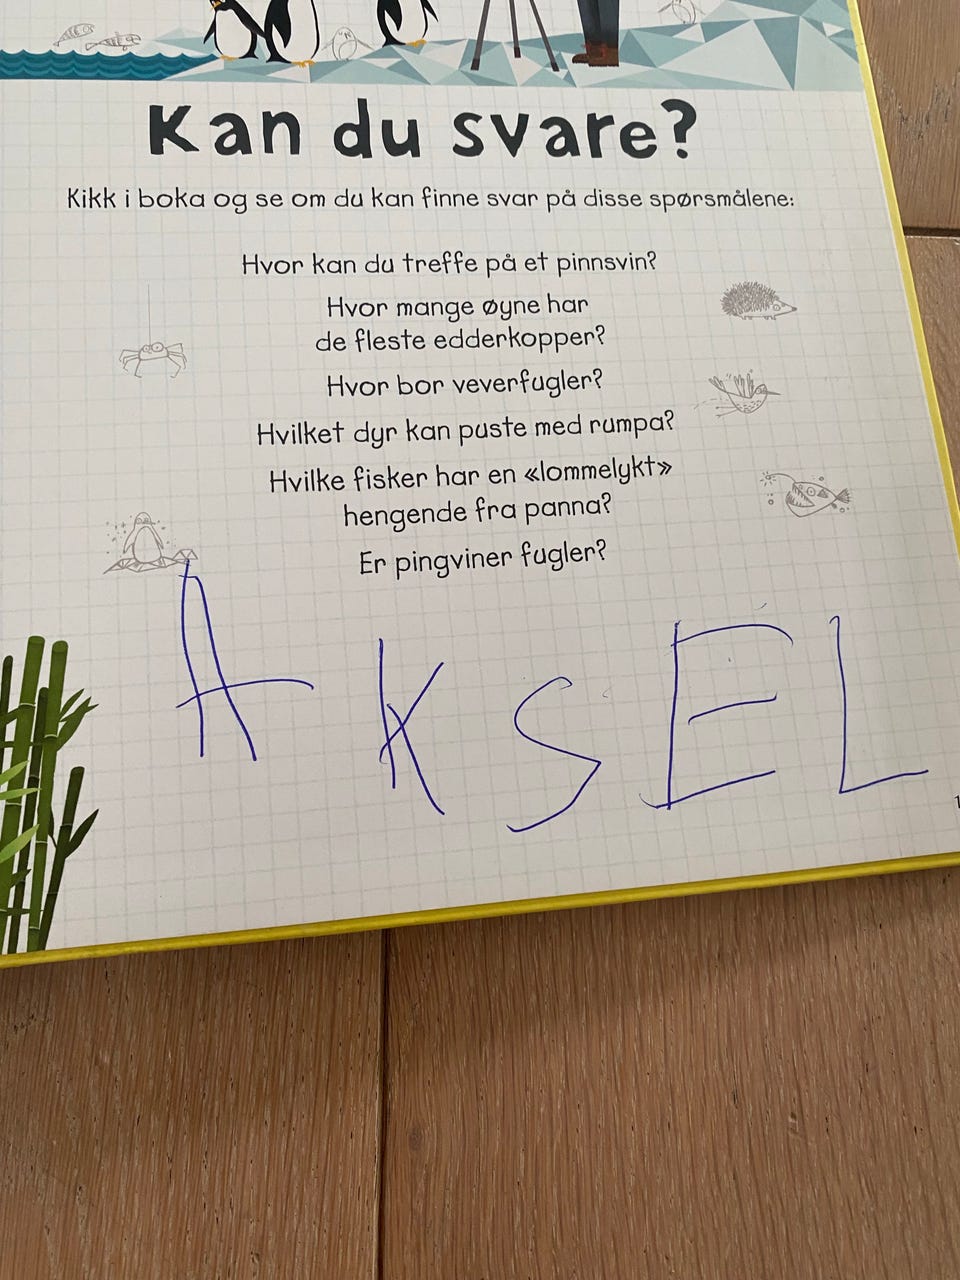 Kan du svare?
Kikk i boka og se om du kan finne svar på disse spørsmålene:
Hvor kan du treffe på et pinnsvin?
Hvor mange øyne har
de fleste edderkopper?
Hvor bor veverfugler?
Hvilket dyr kan puste med rumpa?
Hvilke fisker har en «lommelykt»
hengende fra panna?
Er pingviner fugler?
AKSEL